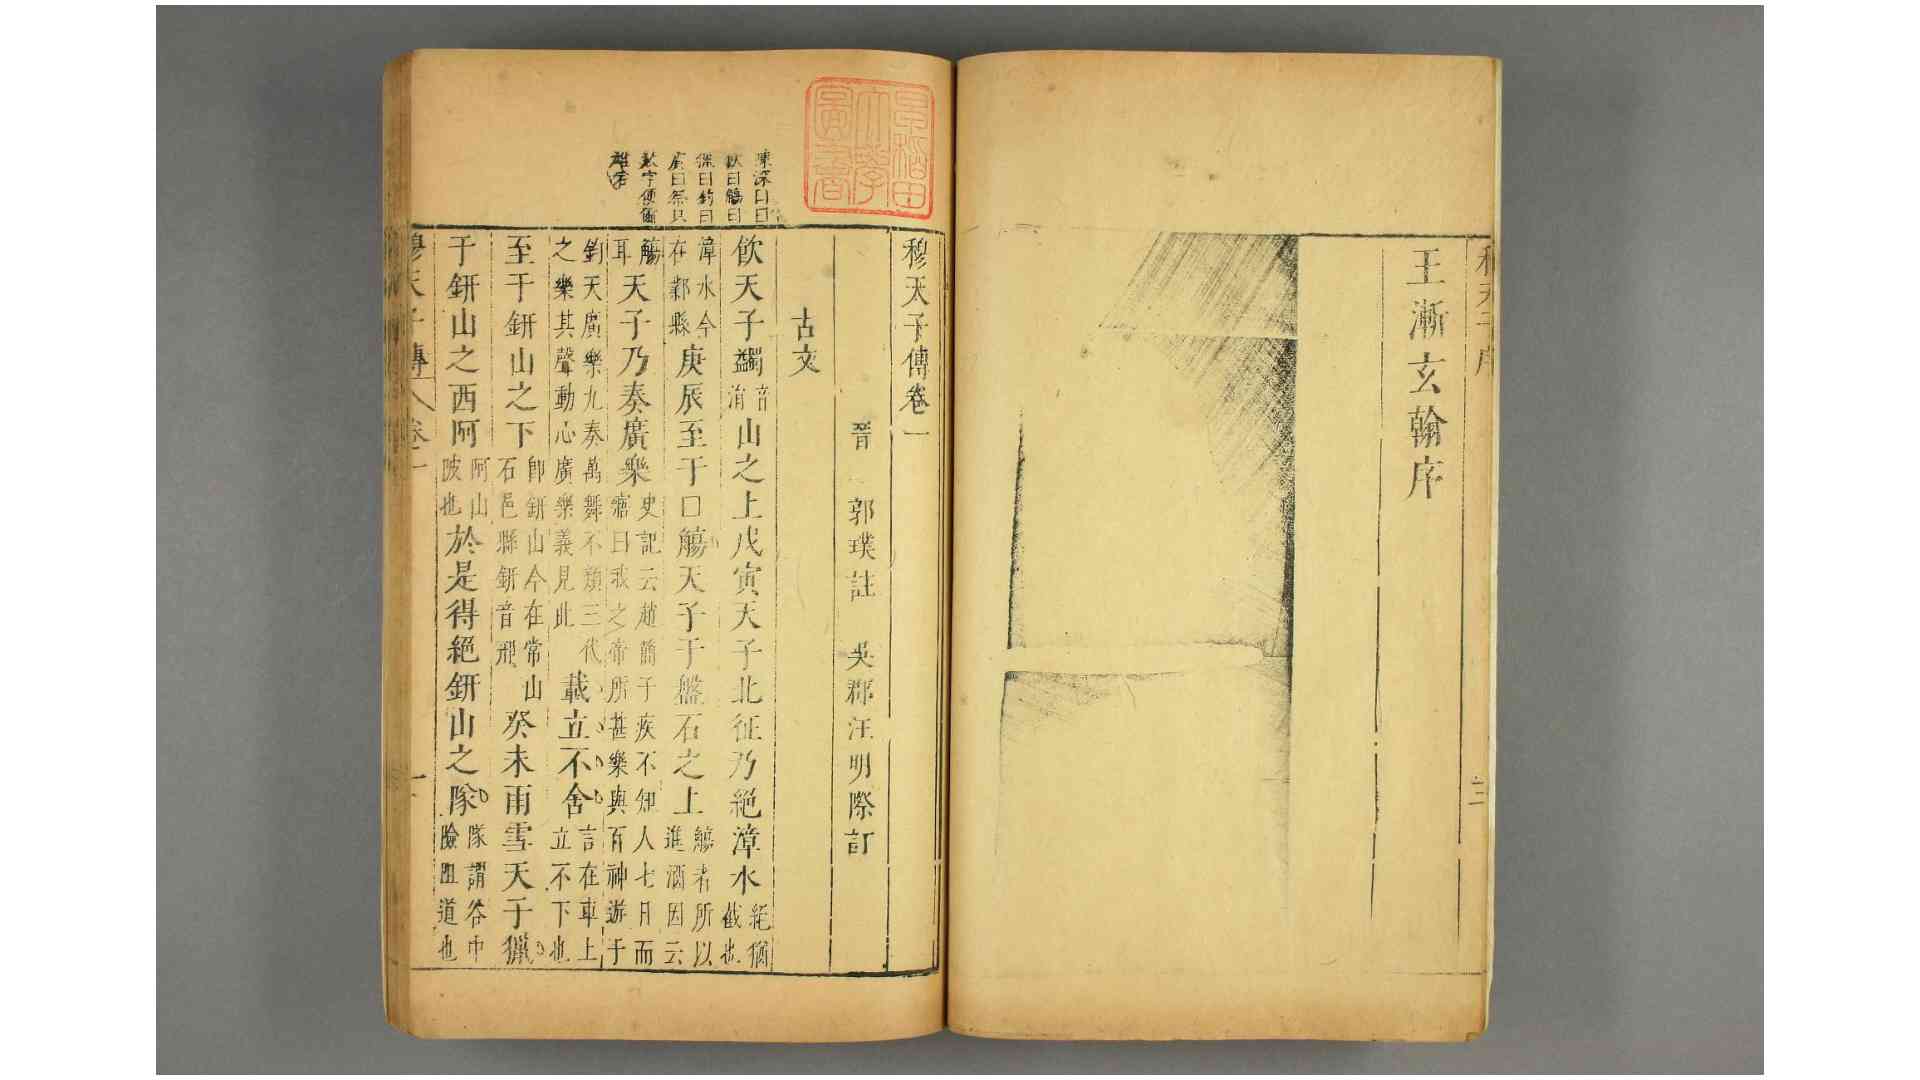 王漸玄翰序
早稲田大學圖書
穆天子傳卷一
晉 郭璞註 吳郡汪明際訂
古文
飲天子蠲音涓山之上戊寅天子北征乃絕漳水絕猶截也
漳水今在鄴縣庚辰至于口觴天子于盤石之上觴者所以進酒因云
觴耳天子乃奏廣樂史記云趙簡子疾不知人七日而寤曰我之帝所甚樂與百神遊于
鈞天廣樂九奏萬舞不類三代之樂其聲動心廣樂義見此載立不舍言在車上立不下也
至于鈃山之下即鈃山今在常山石邑縣鈃音邢癸未雨雪天子獵
于鈃山之西阿阿山陂也於是得絕鈃山之隊隊謂谷中險阻道也
穆天子傳 卷一 一